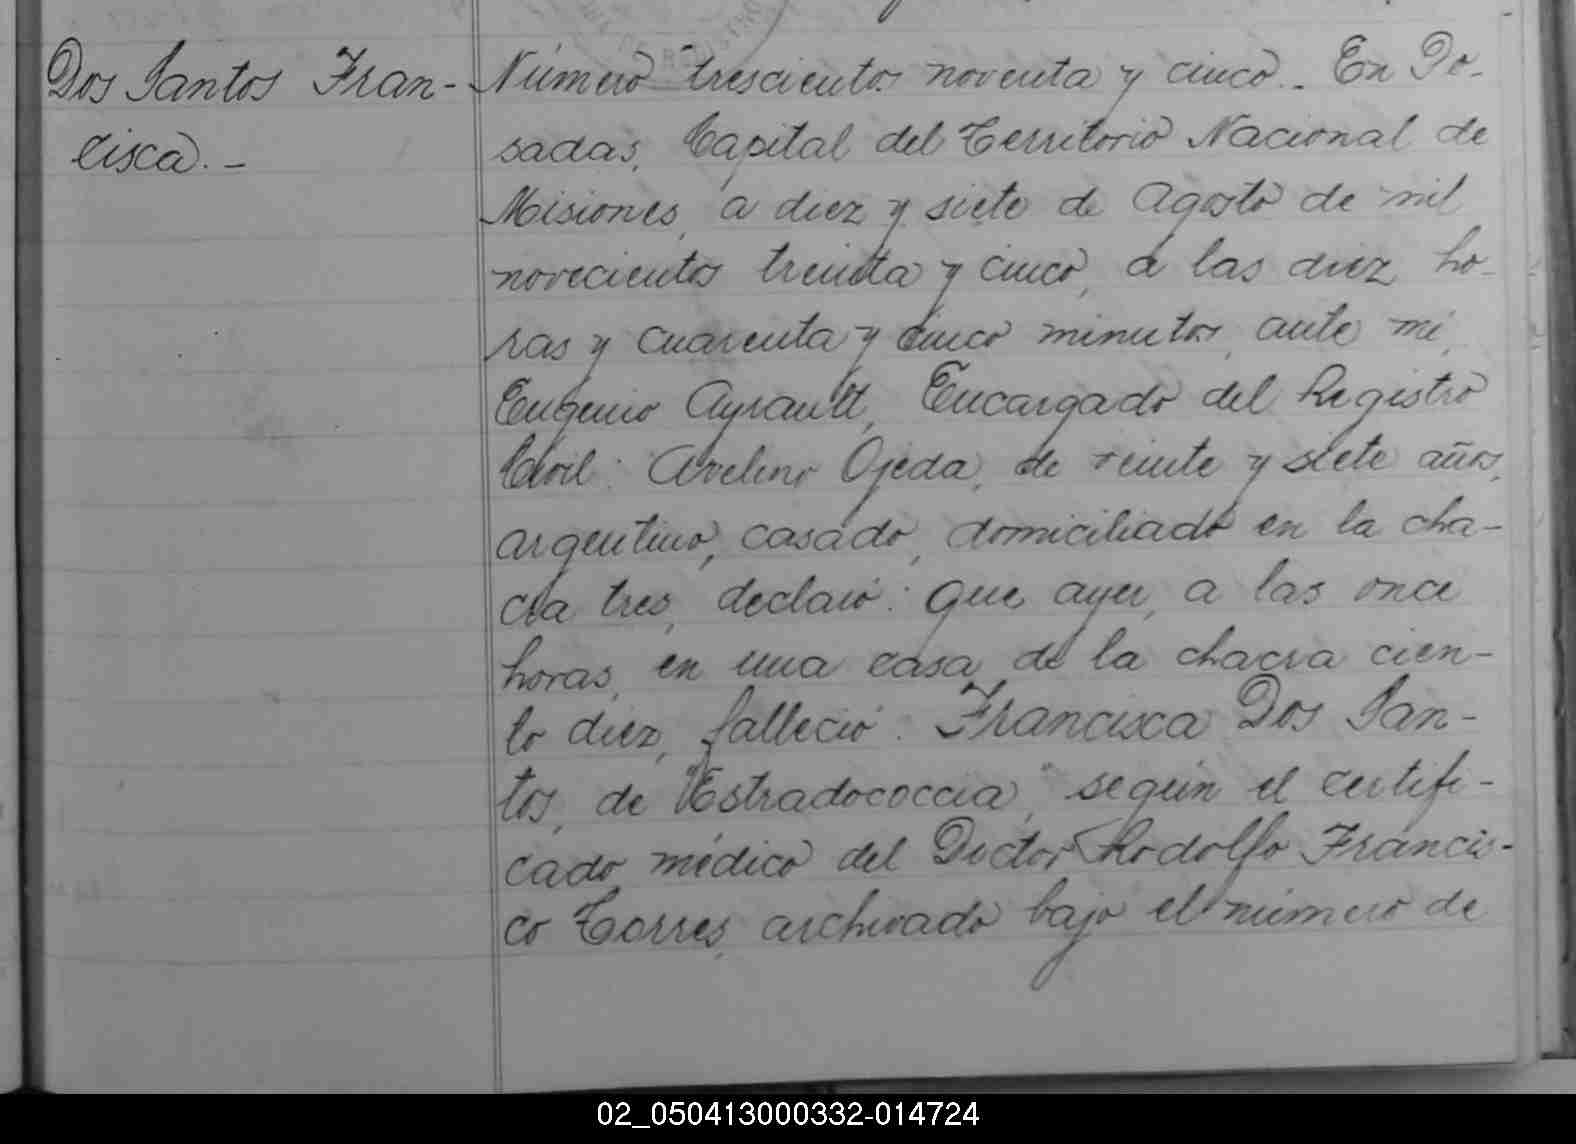 Dos Santos Fran-
cisca. -
Número trescientos noventa y cinco.- En Po-
sadas, Capital del Territorio Nacional de
Misiones, a diez y siete de Agosto de mil
novecientos treinta y cinco, a las diez ho-
ras y cuarenta y cinco minutos, ante mi,
Eugenio Ayrault, Encargado del Registro
Civil: Avelino Ojeda, de veinte y siete años,
argentino, casado, domiciliado en la cha-
cra tres, declaró: Que ayer, a las once
horas, en una casa de la chacra cien-
to diez, falleció: Francisca Dos San-
tos, de "Estradococcia," según el certifi-
cado médico del Doctor Rodolfo Francis-
co Torres, archivado bajo el número de
02_050413000332-014724